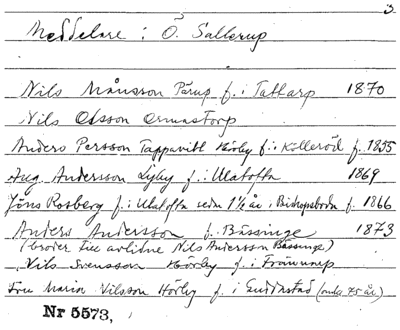 3
Meddelare: Ö. Sallerup
Nils Månsson Pärup f. i Tattarp 1870
Nils Olsson Ormastorp
Anders Persson Tappavitt Hörby f. i Kölleröd f. 1855
Aug Andersson Lyby f. i Ulatofta 1869
Jöns Rosberg f. i Ulatofta sedn 1½ år i Bishopsboda f. 1866
Anders Andersson f. Bussinge 1873
(broder till avlidne Nils Andersson Bussinge)
Nils Svensson Hörby f. i
Fru Maria Nilsson Hörby f. i Guddastad (omkr 75 år)
Nr 5573,